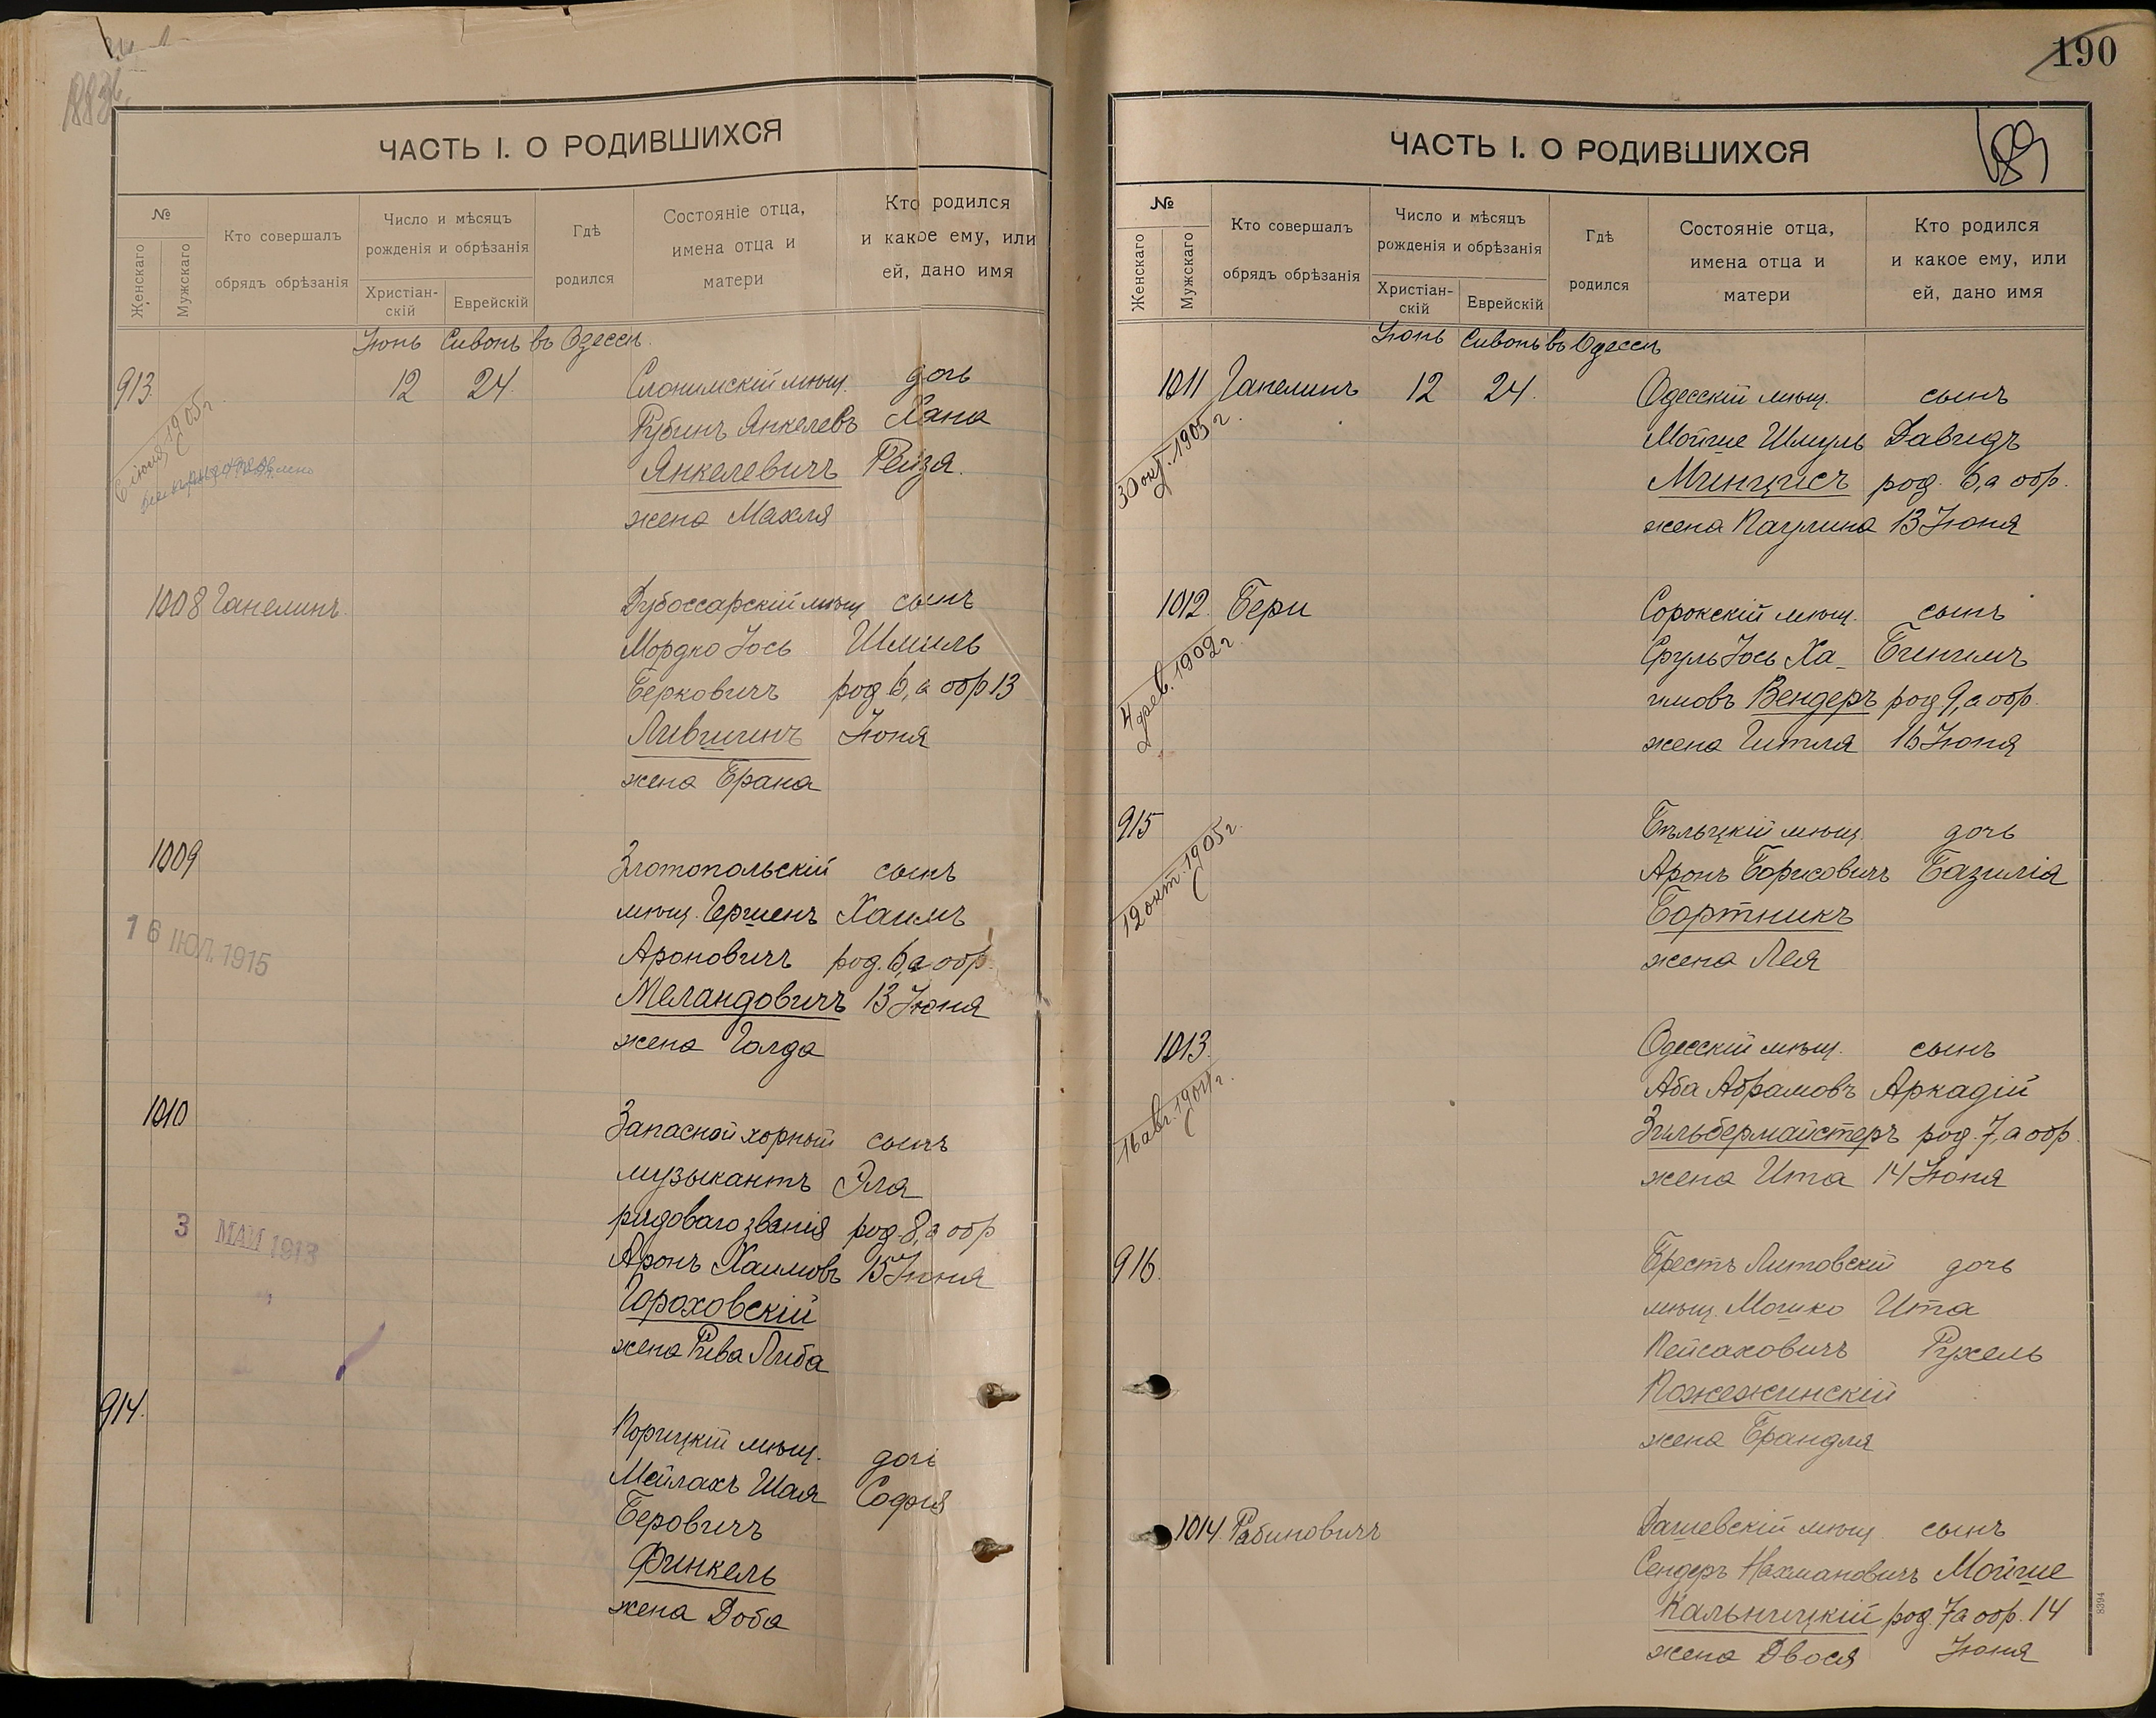 ЧАСТЬ I. О РОДИВШИХСЯ
№
Женскаго
Мужскаго
Кто совершалъ
обрядъ обрѣзанія
Число и мѣсяцъ
рожденія и обрѣзанія
Христіан-
скій
Еврейскій
Гдѣ
родился
Состояніе отца,
имена отца и
матери
Кто родился
и какое ему, или
ей, дано имя
Іюнь Сивонъ въ Одессѣ
913. 12 24. Слонимскій мѣщ. дочь
Рубинъ Янкелевъ Хана
Янкелевичъ Рейзя.
жена Махля
6 іюля 1905 г.
1008 Ганелинъ. Дубоссарскій мѣщ сынъ
Мордко Іось Шмиль
Берковичъ род 6, а обр 13
Лившинъ Іюня
жена Брана
1009 Златопольскій сынъ
мѣщ. Гершенъ Хаимъ
Ароновичъ род. 6, а обр.
Меландовичъ 13 Іюня
жена Голда
16 ІЮЛ. 1915
1010 Запасной хорный сынъ
музыкантъ Эля
рядоваго званія род 8, а обр
Аронъ Хаимовъ 15 Іюня
Гороховскій
жена Рива Либа
3 МАИ 1913
914. Порицкій мѣщ. дочь
Мейлахъ Шая Софія
Беровичъ
Финкель
жена Доба
190
189
ЧАСТЬ I. О РОДИВШИХСЯ
№
Женскаго
Мужскаго
Кто совершалъ
обрядъ обрѣзанія
Число и мѣсяцъ
рожденія и обрѣзанія
Христіан-
скій
Еврейскій
Гдѣ
родился
Состояніе отца,
имена отца и
матери
Кто родился
и какое ему, или
ей, дано имя
Іюнь Сивонъ въ Одессѣ
1011 Ганелинъ 12 24. Одесскій мѣщ. сынъ
Мойше Шмуль Давидъ
Минцисъ род. 6, а обр.
жена Паулина 13 Іюня
30 окт. 1905 г.
1012. Бери Сорокскій мѣщ. сынъ
Сруль Іось Ха- Бенимъ
имовъ Вендеръ род. 9, а обр.
жена Гитля 16 Іюня
4 фев. 1909 г.
915 Бѣльцкій мѣщ. дочь
Аронъ Борисовичъ Базилія
Бортникъ
жена Лея
12 окт. 1905 г.
1013. Одесскій мѣщ. сынъ
Аба Абрамовъ Аркадій
Зильбермайстеръ род. 7, а обр.
жена Ита 14 Іюня
16 авг. 1904 г.
916. Брестъ Литовскій дочь
мѣщ. Мошко Ита
Пейсаховичъ Рухель
Пожежинскій
жена Брандля
1014. Рабиновичъ Дашевскій мѣщ. сынъ
Сендеръ Нахмановичъ Мойше
Кальницкій род. 7 а обр. 14
жена Двося Іюня
8394